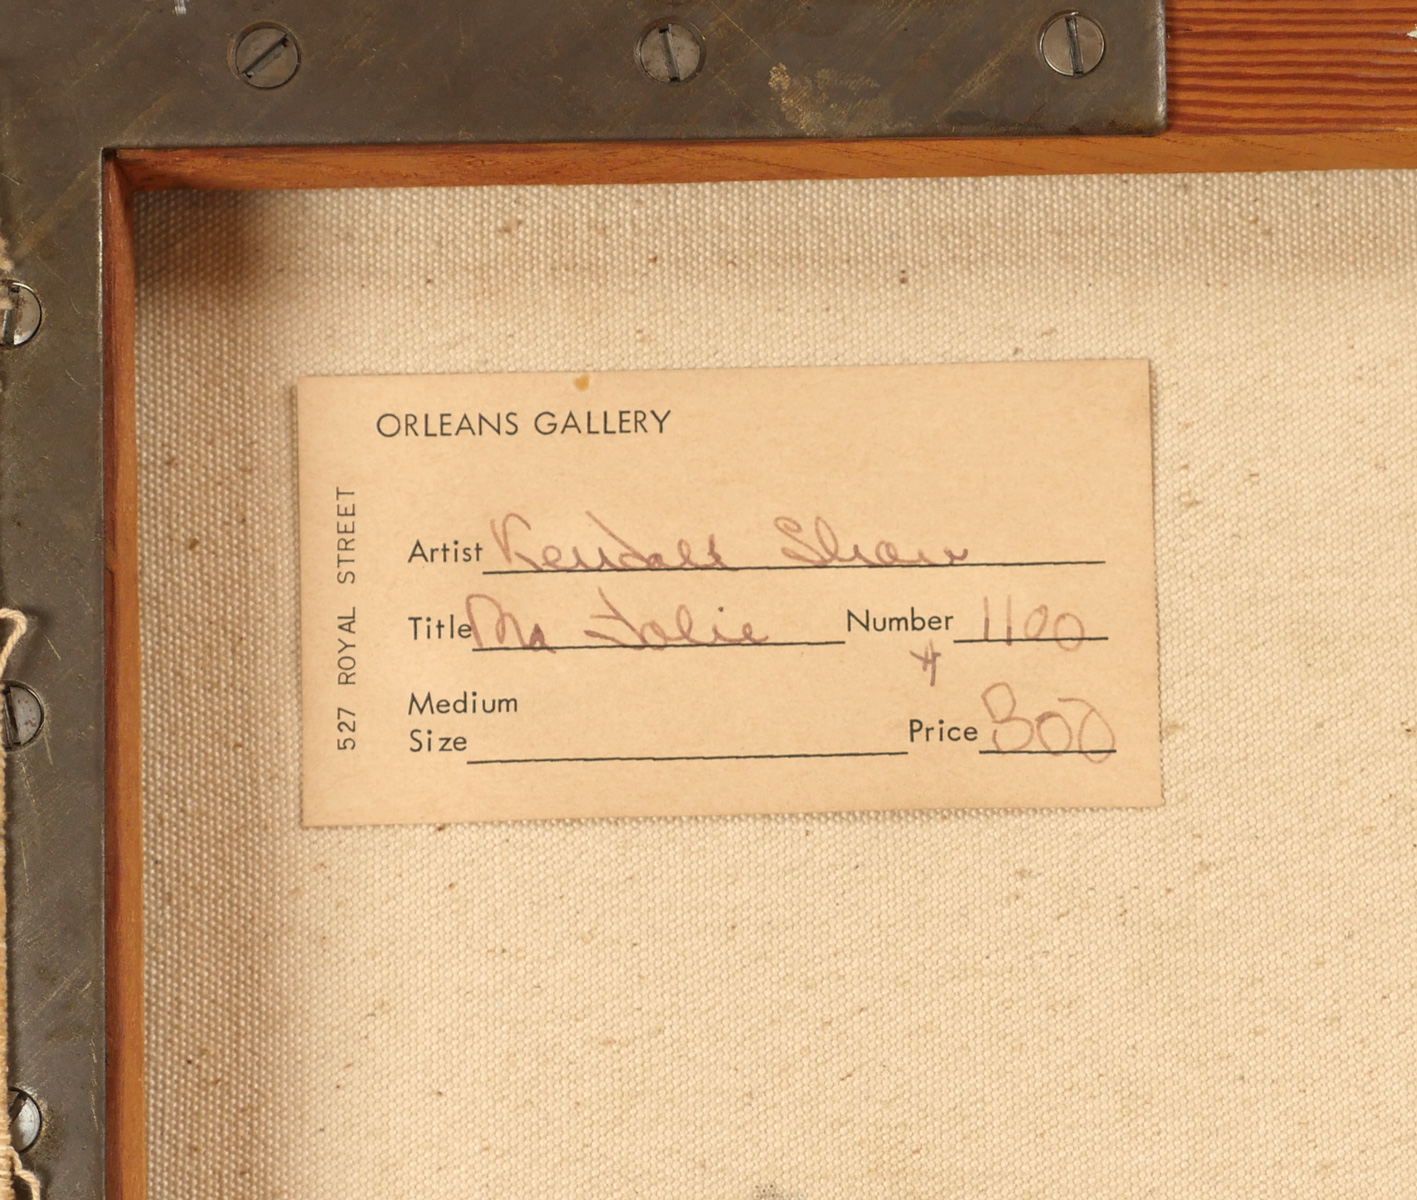 ORLEANS GALLERY
527 ROYAL STREET
Artist Kendall Shaw
Title Ma Jolie Number 1100
Medium
Size Price $300